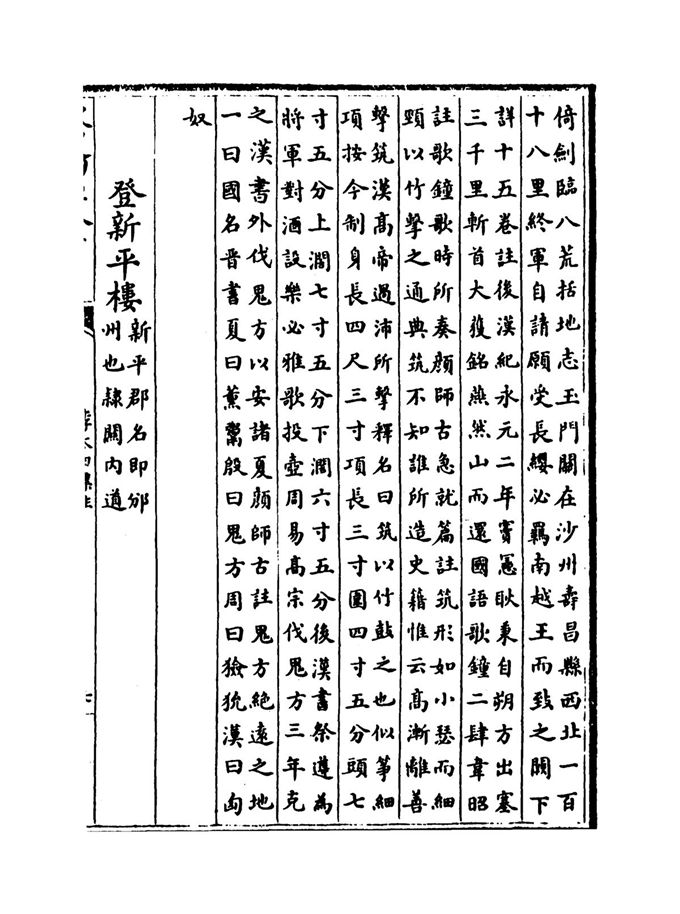 倚劍臨八荒括地志玉門關在沙州壽昌縣西北一百
十八里終軍自請願受長纓必羈南越王而致之闕下
詳十五卷註後漢紀永元二年竇憲耿秉自朔方出塞
三千里斬首大獲銘燕然山而還國語歌鐘二肆韋昭
註歌鐘歌時所奏顔師古急就篇註筑形如小瑟而細
頸以竹擊之通典筑不知誰所造史籍惟云高漸離善
擊筑漢高帝過沛所擊釋名曰筑以竹鼓之也似箏細
項按今制身長四尺三寸項長三寸圍四寸五分頭七
寸五分上濶七寸五分下濶六寸五分後漢書祭遵為
將軍對酒設樂必雅歌投壺周易高宗伐鬼方三年克
之漢書外伐鬼方以安諸夏顔師古註鬼方絶遠之地
一曰國名晋書夏曰薰鬻殷曰鬼方周曰獫狁漢曰匈
奴
登新平樓
新平郡名即邠
州也隸關内道